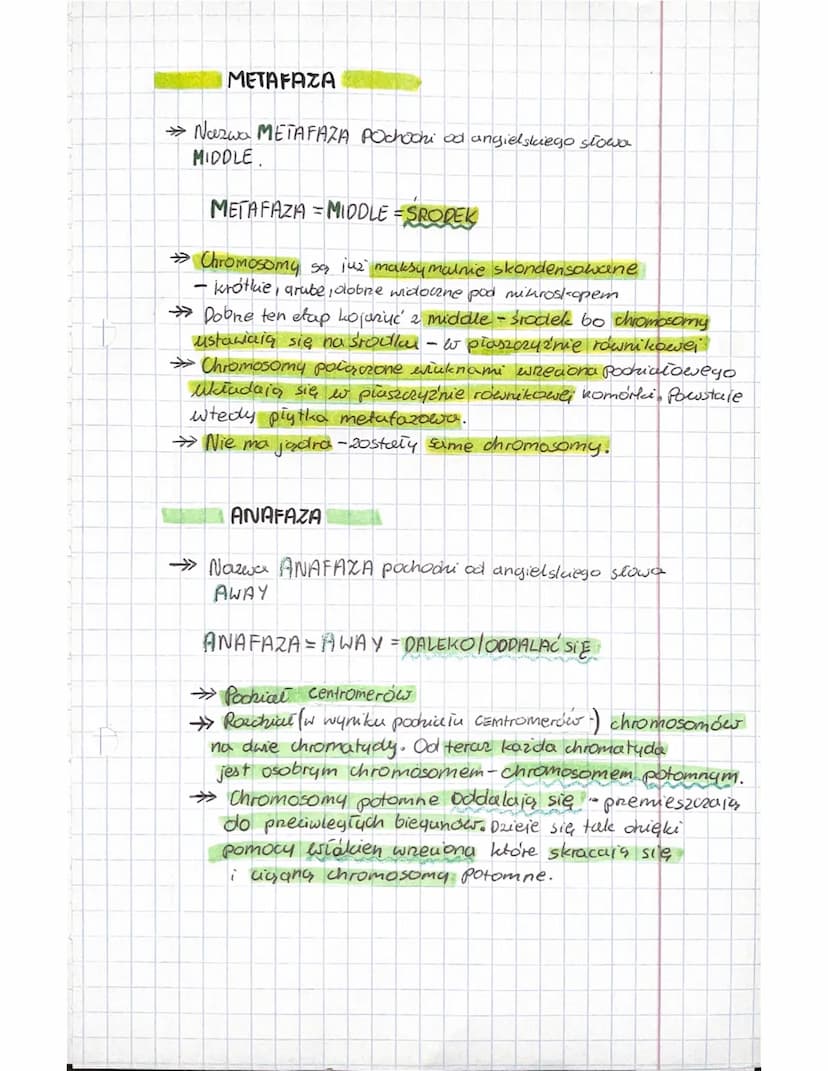 METAFAZA
→ Nazwa METAFAZA pochodzi od angielskiego słowa
MIDDLE.
METAFAZA = MIDDLE = ŚRODEK
→ Chromosomy są już maksymalnie skondensowane
- krótkie, grube, dobrze widoczne pod mikroskopem
→ Dobrze ten etap kojarzyć z middle - środek bo chromosomy
ustawiają się na środku - w płaszczyźnie równikowej
→ Chromosomy połączone włóknami wrzeciona podziałowego
układają się w płaszczyźnie równikowej komórki. Powstaje
wtedy płytka metafazowa.
→ Nie ma jądra - zostały same chromosomy.
ANAFAZA
→ Nazwa ANAFAZA pochodzi od angielskiego słowa
AWAY
ANAFAZA = AWAY = DALEKO/ODDALAĆ SIĘ
→ Podział centromerów
→ Rozdział (w wyniku podziału centromerów) chromosomów
na dwie chromatydy. Od teraz każda chromatyda
jest osobnym chromosomem - chromosomem potomnym.
→ Chromosomy potomne oddalają się - przemieszczają
do przeciwległych biegunów. Dzieje się tak dzięki
pomocy włókien wrzeciona które skracają się
i ciągną chromosomy potomne.